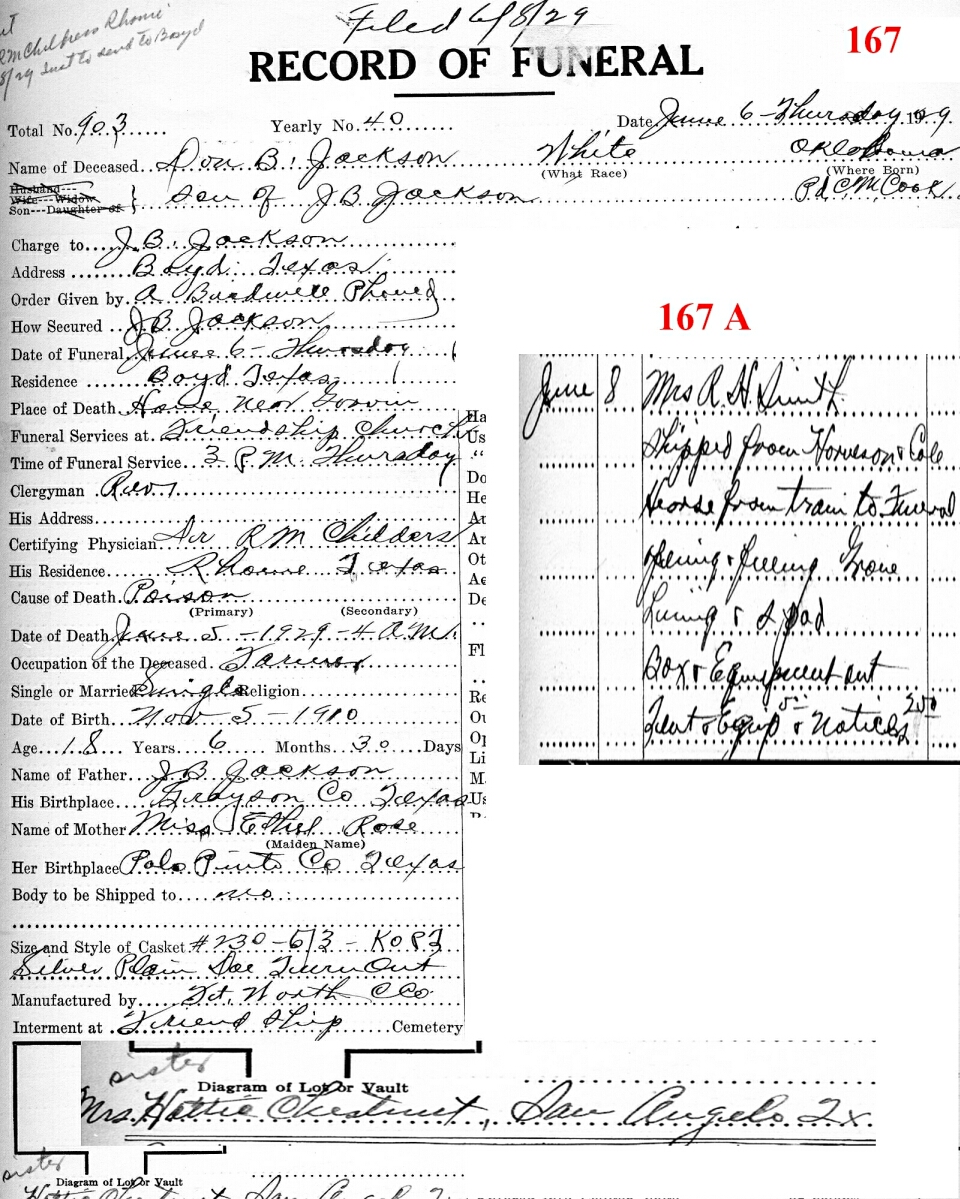 Filed 6/8/29
RM Childress Rhome
8/29 Just to send to Boyd
167
RECORD OF FUNERAL
Total No. 903 Yearly No. 40 Date June 6 - Thursday 1929
Name of Deceased Don B. Jackson White Oklahoma
(What Race) (Where Born)
Husband---
Wife---Widow
Son---Daughter of } Son of J B Jackson Pd C M Cook
Charge to J. B. Jackson
Address Boyd Texas
Order Given by A Phoned
How Secured J B Jackson
Date of Funeral June 6 - Thursday
Residence Boyd Texas
Place of Death Home near
Funeral Services at Friendship Church
Time of Funeral Service 3 P.M. Thursday
Clergyman Rev
His Address
Certifying Physician Dr R M Childers
His Residence Rhome Texas
Cause of Death Poison
(Primary) (Secondary)
Date of Death June 5 - 1929 - 4 A.M.
Occupation of the Deceased Farmer
Single or Married Single Religion
Date of Birth Nov - 5 - 1910
Age 18 Years 6 Months 30 Days
Name of Father J B Jackson
His Birthplace Grayson Co Texas
Name of Mother Miss Ethel Rose
(Maiden Name)
Her Birthplace Palo Pinto Co Texas
Body to be Shipped to no
Size and Style of Casket # 230 - 6/3 - K083
Silver Plain Doe Turn Out
Manufactured by Ft. Worth C Co
Interment at Friend Ship Cemetery
167 A
June 8 Mrs R. H. Smith
Shipped from & Cole
Hearse from train to Funeral
Opening & filling Grave
Lining & Pad
Box & Equipment out
Tent & Equip 5 & Notices 250
Ha
Us
"
Do
He
An
Ot
Ae
De
Fl
Re
Ou
Op
Li
M
Us
sister
Diagram of Lot or Vault
Mrs. Hattie Chestnut, San Angelo Tx.
sister
Diagram of Lot or Vault
Hattie Chestnut San Angelo